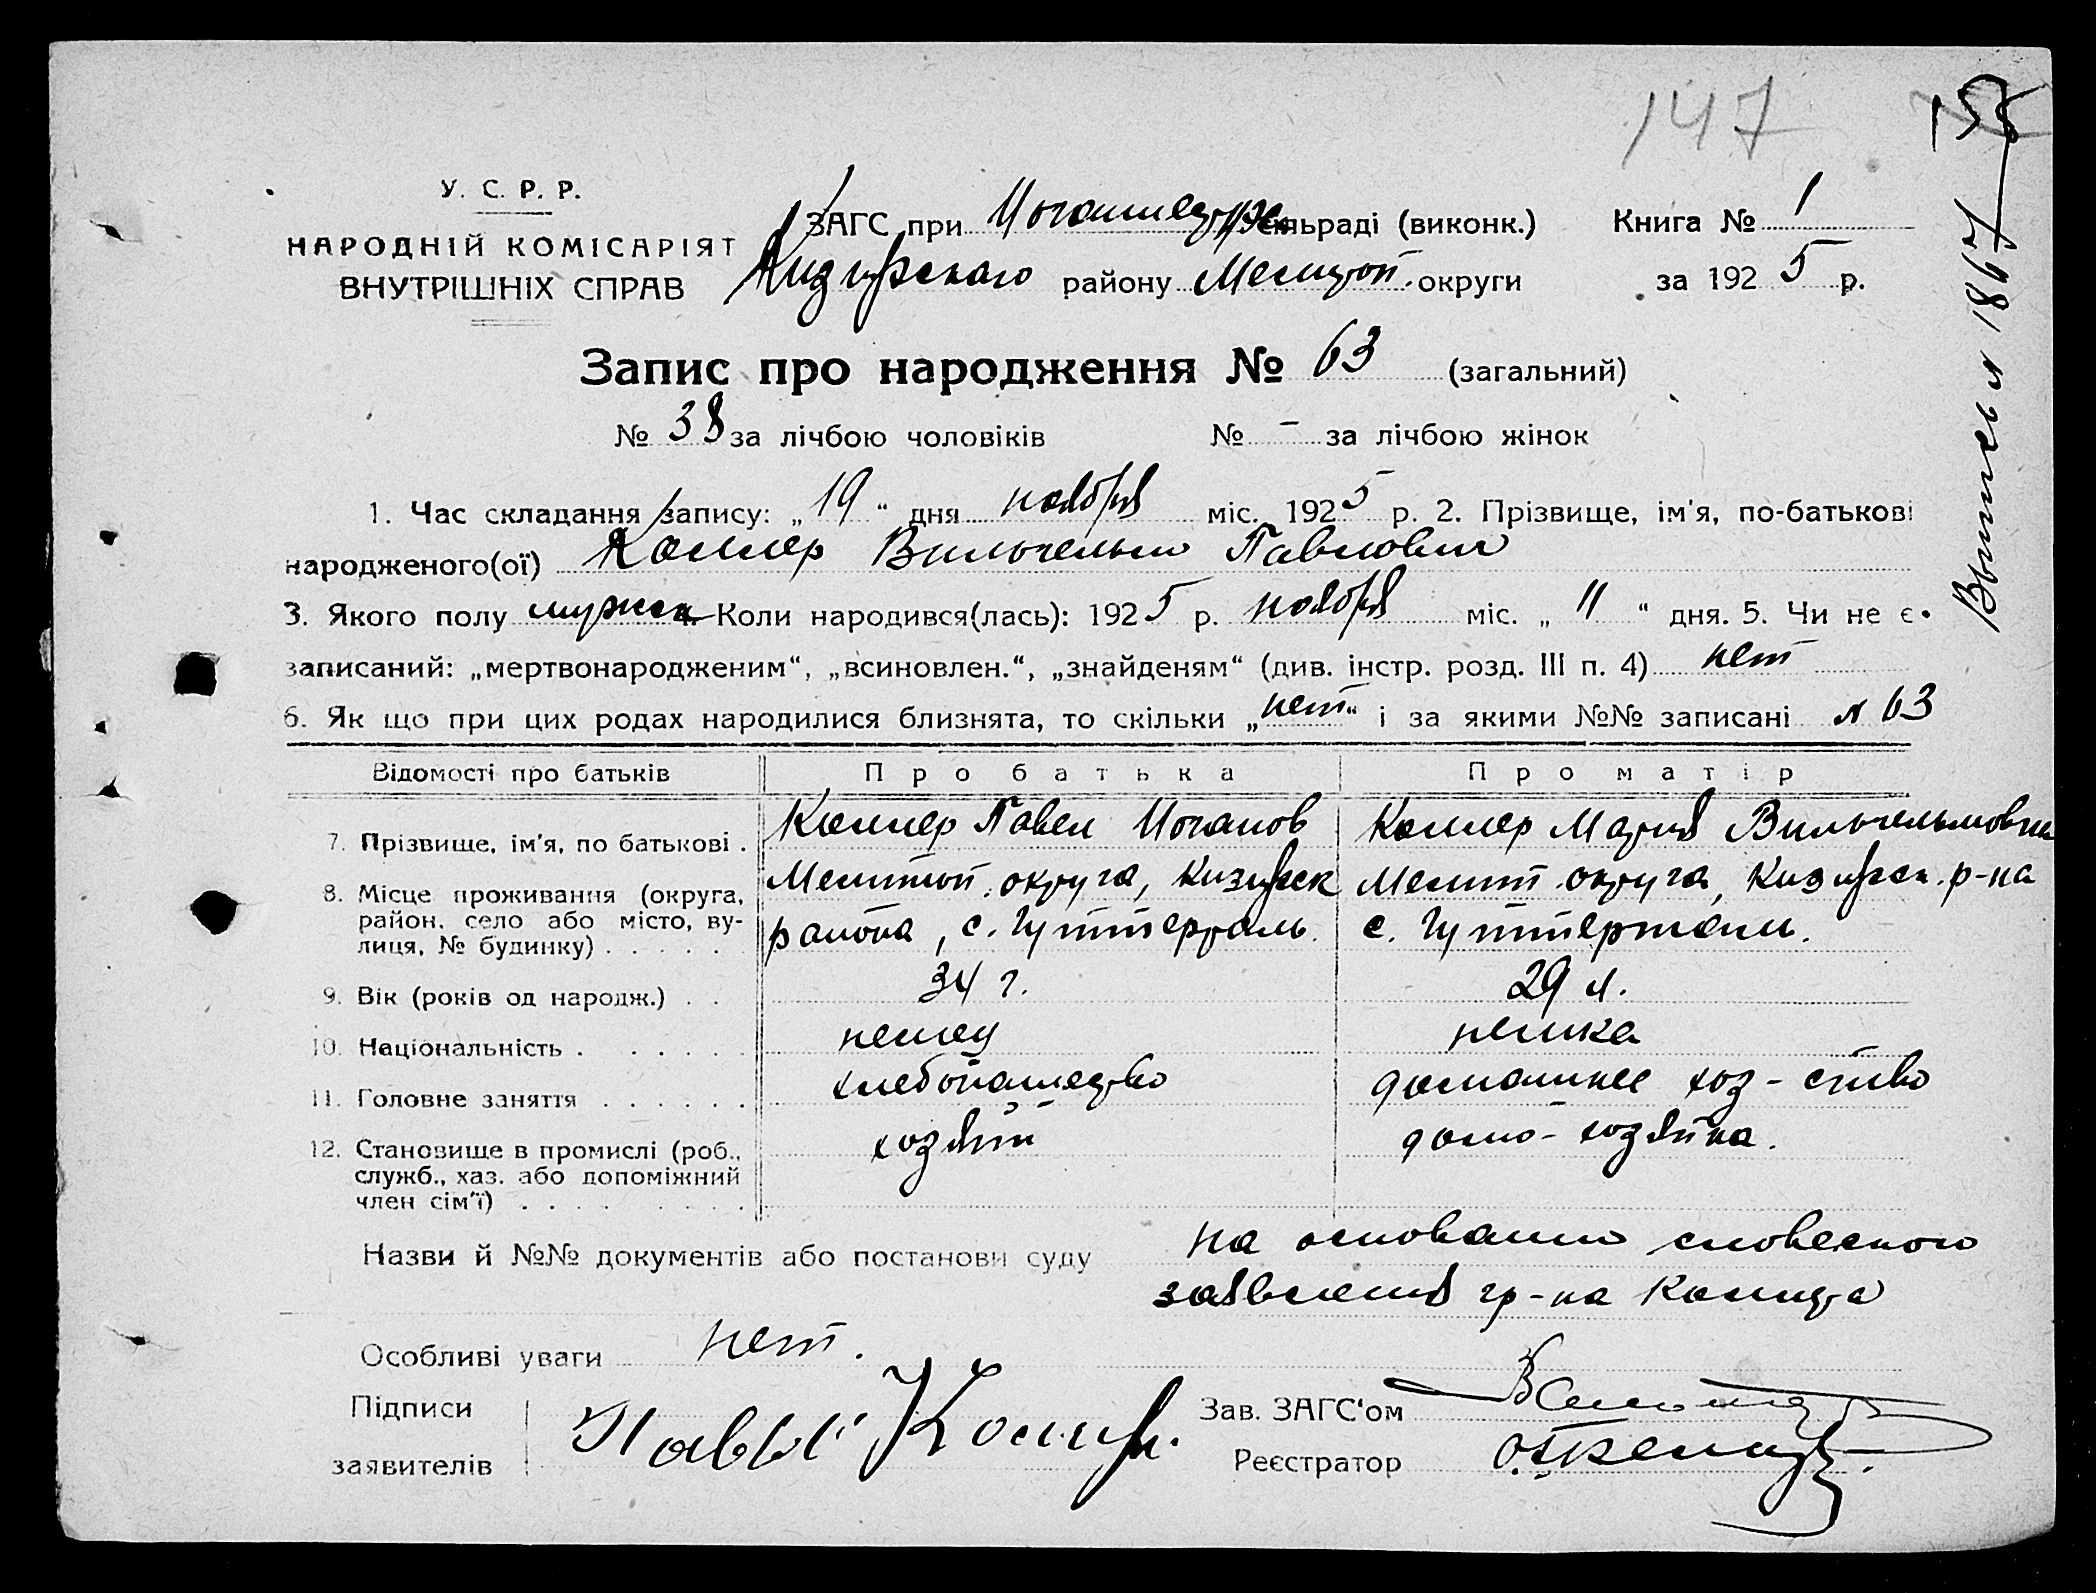 147
155
У. С. Р. Р.
НАРОДНІЙ КОМІСАРІЯТ
ВНУТРІШНІХ СПРАВ
ЗАГС при сільраді (виконк.) Книга № 1
району Мелитоп. округи за 1925 р.
Запис про народження № 63 (загальний)
№ 38 за лічбою чоловіків № – за лічбою жінок
1. Час складання запису: „19“ дня ноября міс. 1925 р. 2. Прізвище, ім'я, по-батькові
народженого(ої) Коллер Вильгельм Павлович
3. Якого полу мужск. Коли народився(лась): 1925 р. ноября міс. „11“ дня. 5. Чи не є
записаний: „мертвонародженим“, „всиновлен.“, „знайденям“ (див. інстр. розд. III п. 4) нет
6. Як що при цих родах народилися близнята, то скільки „нет“ і за якими №№ записані № 63
Відомості про батьків Про батька Про матір
7. Прізвище, ім'я, по батькові . Коллер Павел Иоганов Коллер Мария Вильгельмовна
8. Місце проживання (округа, район, село або місто, вулиця, № будинку) . . . . .
Мелитоп. округа, Кизиярск района, с. Гуттерталь.
Мелит. округа, Кизиярск. р-на с. Гуттерталь.
9. Вік (років од народж.) . . 34 г. 29 л.
10. Національність . . . . . . немец немка
11. Головне заняття . . . . . . хлебопашество домашнее хоз-ство
12. Становище в промислі (роб., служб., хаз. або допоміжний член сім'ї) . . . . . . . .
хозяин домо-хозяйка.
Назви й №№ документів або постанови суду на основании словесного
заявления гр-на Коллера
Особливі уваги нет.
Підписи
заявителів
Зав. ЗАГС'ом
Реєстратор